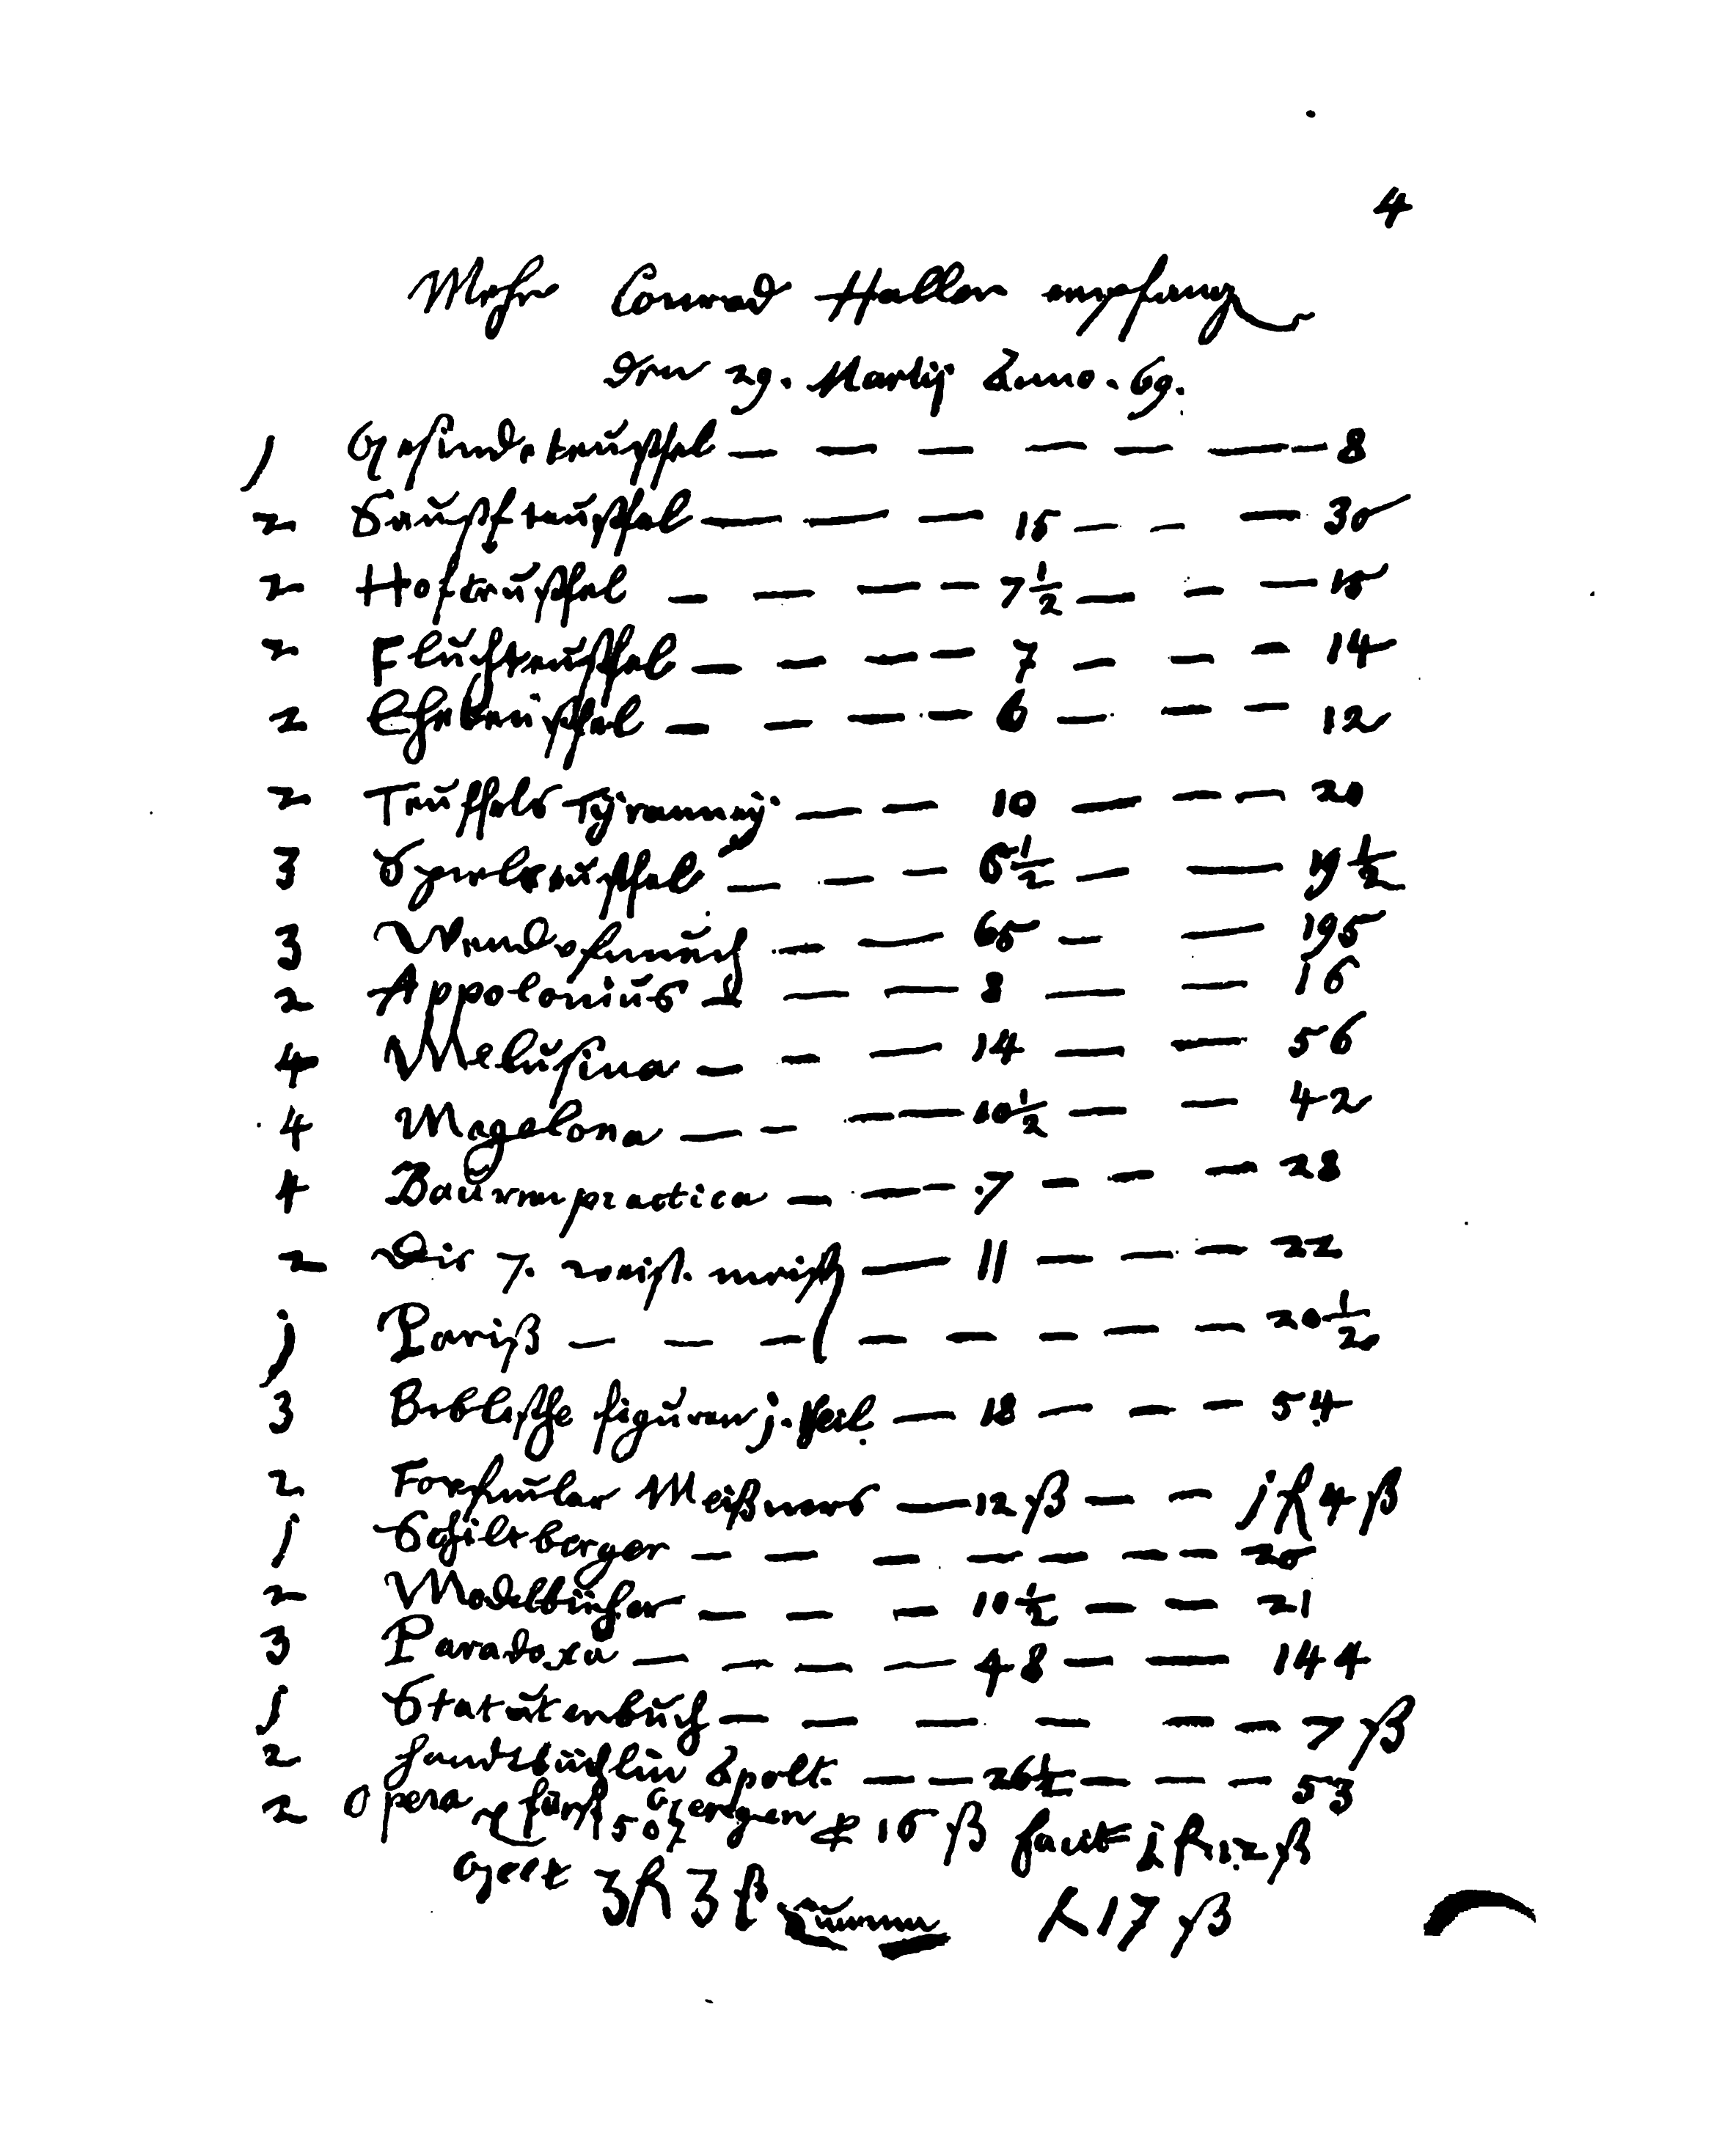 4
Mehr Conrad Hallen empfang
den 29. Martij Anno. 69.
j Gesindeteuffel — — — — — — 8
2 Sauffteuffel — — — 15 — — — 30
2 Hofteuffel — — — — 7½ — — — 15
2 Fluchteuffel — — — — 7 — — — 14
2 Eheteuffel — — — — 6 — — — 12
2 Teuffels Tyranney — — 10 — — — 20
3 Spielteuffel — — — 6½ — — 19½
3 Wendunmuth — — 65 — — 195
2 Appolonius — — — 8 — — 16
4 Melusina — — — 14 — — 56
4 Magelona — — — — 10½ — — 42
4 Baurenpractica — — — 7 — — — 28
2 Die 7. weiß. meist — 11 — — — 22
j Pariß — — — — — — — — 20½
3 Biblische figuren j. theil — 18 — — — 54
2 Formular Meißners — 12 ß — — j fl 4 ß
j Schiltberger — — — — — — — 20
2 Modelbücher — — — 10½ — — 21
3 Paradoxa — — — — 48 — — 144
j Statutenbuch — — — — — — 7 ß
2 handtbüchlin Apolt. — — 26½ — — — 53
2 Opera 16 ß facit j fl 12 ß
Gelt 3 fl 3 ß Summa fl 17 ß